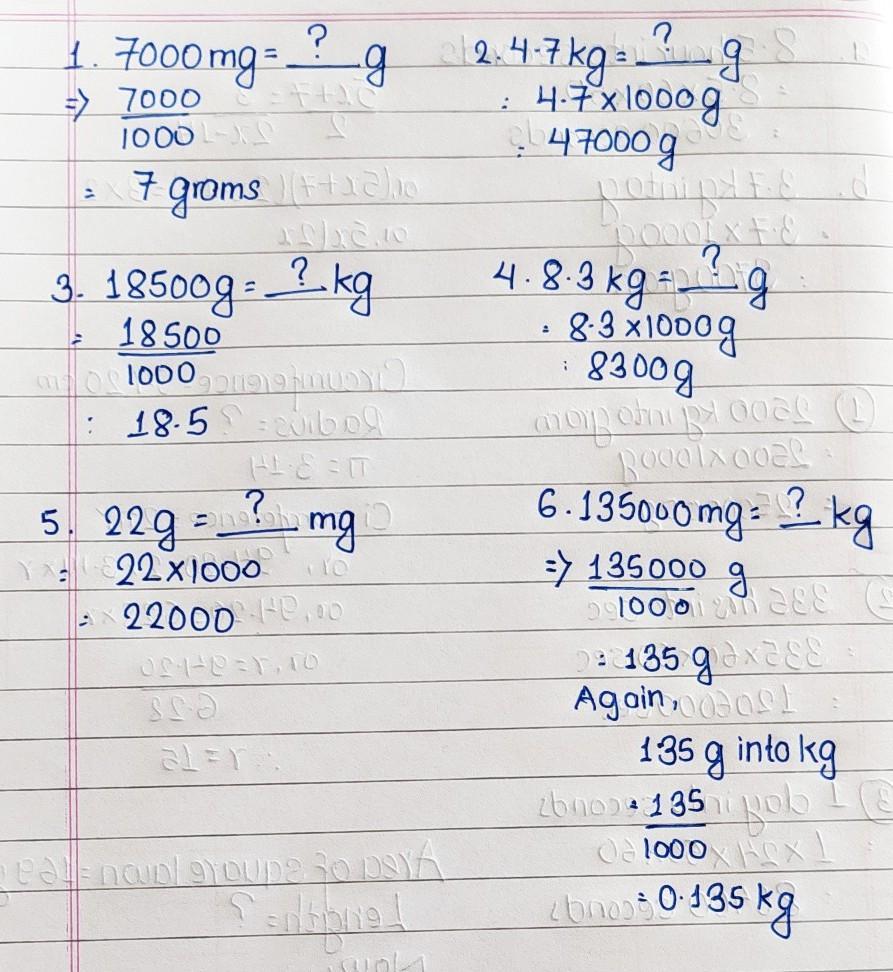 1. 7000mg = ? g
=> 7000
1000
= 7 groms
2. 4.7 kg = ? g
: 4.7 x 1000 g
: 47000 g
3. 18500g = ? kg
= 18500
1000
: 18.5
4. 8.3 kg = ? g
= 8.3 x 1000 g
: 8300 g
5. 22g = ? mg
= 22 x 1000
= 22000
6. 135000mg = ? kg
=> 135000 g
1000
= 135 g
Again,
135 g into kg
= 135
1000
= 0.135 kg